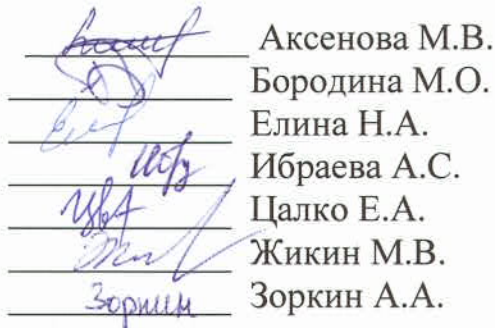 Аксенова М.В.
Бородина М.О.
Елина Н.А.
Ибраева А.С.
Цалко Е.А.
Жикин М.В.
Зоркин Зоркин А.А.